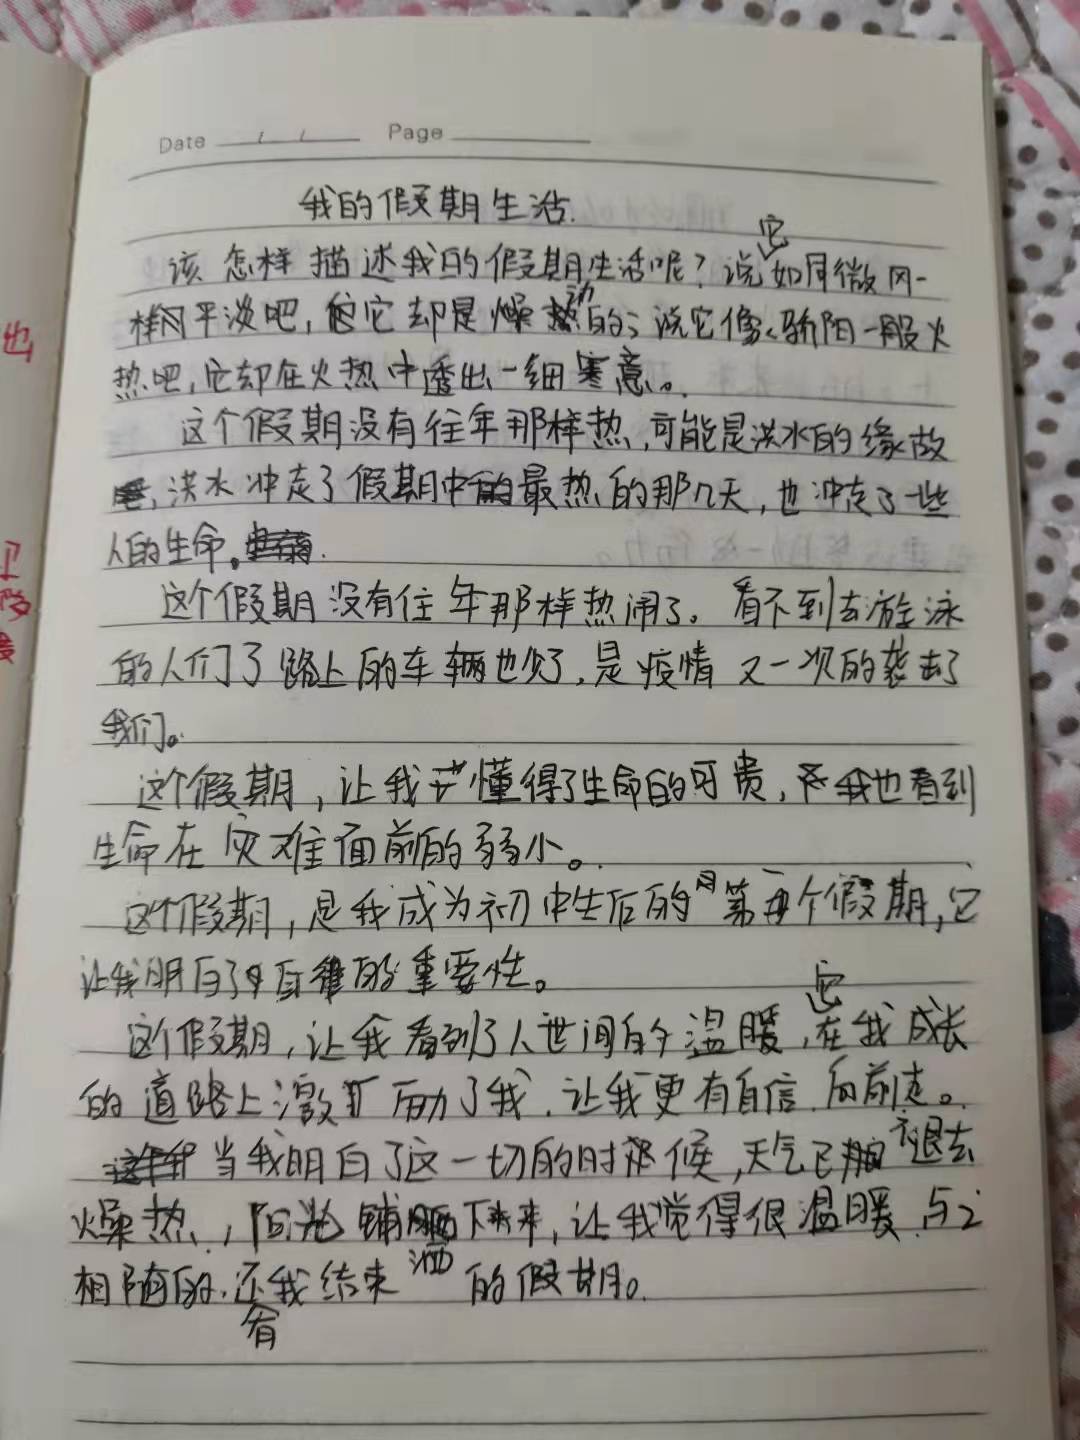 Date / / Page
我的假期生活.
该怎样描述我的假期生活呢？说它如同微风一
样平淡吧，它却是燥动的；说它像骄阳一般火
热吧，它却在火热中透出一细寒意。
这个假期没有往年那样热，可能是洪水的缘故
，洪水冲走了假期中最热的那几天，也冲走了一些
人的生命。
这个假期没有往年那样热闹了。看不到去游泳
的人们了路上的车辆也少了，是疫情又一次的袭击了
我们。
这个假期，让我懂得了生命的可贵，我也看到
生命在灾难面前的弱小。
这个假期，是我成为初中生后的第一个假期，它
让我明白了自律的重要性。
这个假期，让我看到了人世间的温暖，它在我成长
的道路上激励了我，让我更有自信向前走。
当我明白了这一切的时候，天气已褪去
燥热，阳光铺洒下来，让我觉得很温暖，与之
相随的，还有我结束的假期。
也